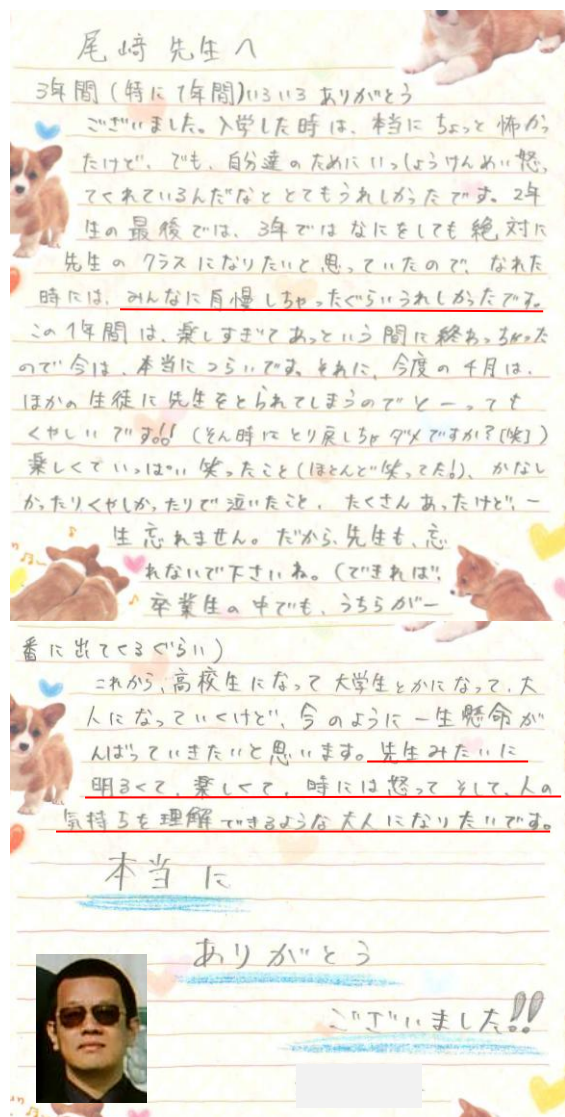 尾﨑先生へ
3年間(特に1年間)いろいろありがとう
ございました。入学した時は、本当にちょっと怖かっ
たけど、でも、自分達のためにいっしょうけんめい怒っ
てくれているんだなととてもうれしかったです。2年
生の最後では、3年ではなにをしても絶対に
先生のクラスになりたいと思っていたので、なれた
時には、みんなに自慢しちゃったぐらいうれしかったです。
この1年間は、楽しすぎてあっという間に終わっちゃった
ので今は、本当につらいです。それに、今度の4月は、
ほかの生徒に先生をとられてしまうのでとーっても
くやしいです!!(そん時にとり戻しちゃダメですか?(笑))
楽しくていっぱい笑ったこと(ほとんど笑ってた!)、かなし
かったりくやしかったりで泣いたこと、たくさんあったけど、一
生忘れません。だから、先生も、忘
れないで下さいね。(できれば、
卒業生の中でも、うちらが一
番に出てくるぐらい)
これから、高校生になって大学生とかになって、大
人になっていくけど、今のように一生懸命が
んばっていきたいと思います。先生みたいに
明るくて、楽しくて、時には怒ってそして、人の
気持ちを理解できるような大人になりたいです。
本当に
ありがとう
ございました!!